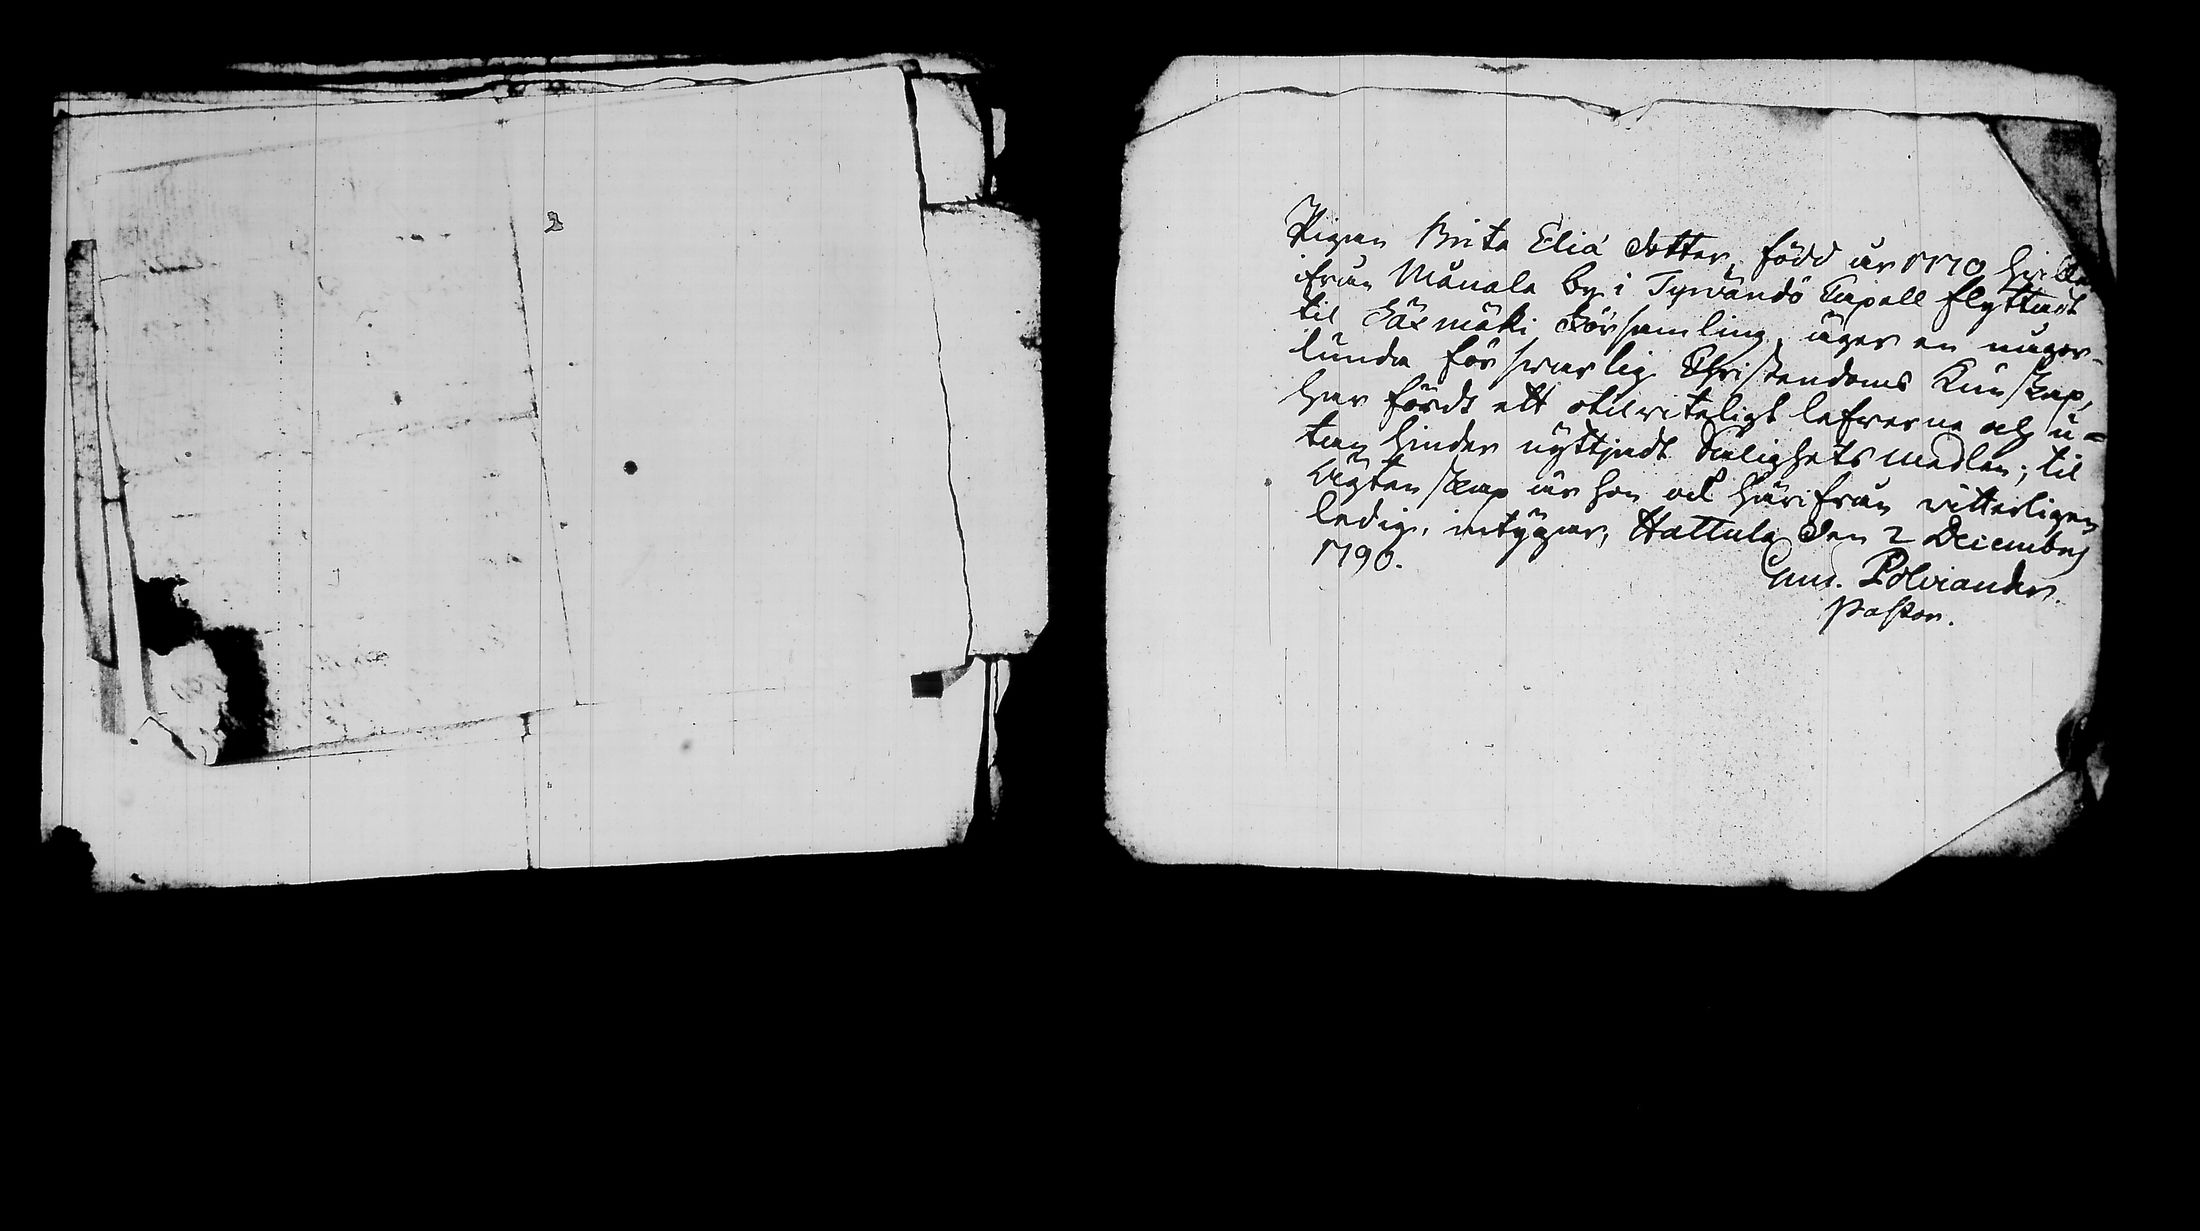 2
Pigan Brita Eliæ dotter, född år 1770 hvilken
ifrån Månala by i Tyrvändö Capell flyttadt
til Säxmäki Församling, äger en någor-
lunda försvarlig Christendoms Kunskap,
har fördt ett otadviteligt lefverne och u=
tan hinder nyttjadt Salighets medlen; til
ägtenskap är hon ock härifrån vitterligen
ledig, intygar, Hattula den 2 Decembr
1790.
Polviander.
Pastor.